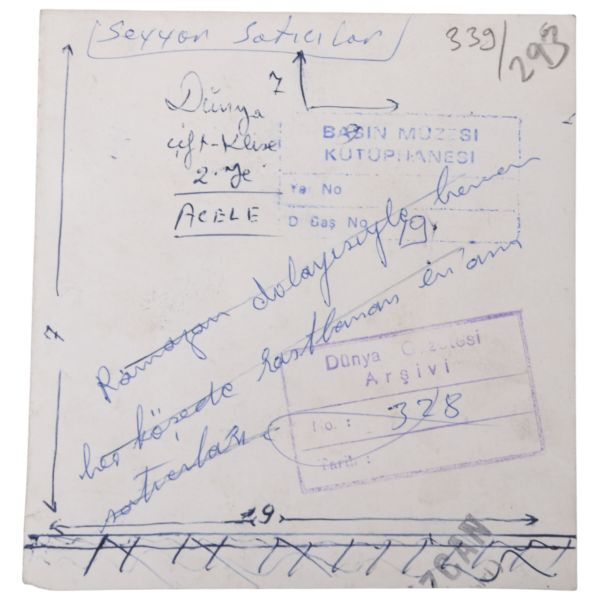 Seyyar Satıcılar
339/293
7
Dünya
çift-Klişe
2.ye
ACELE
BASIN MÜZESİ
KÜTÜPHANESİ
Yer No
D Baş No 19
Ramazan dolayısıyle hemen
her köşede rastlanan
satıcıları
7
Dünya Gazetesi
Arşivi
No.: 328
Tarih:
19